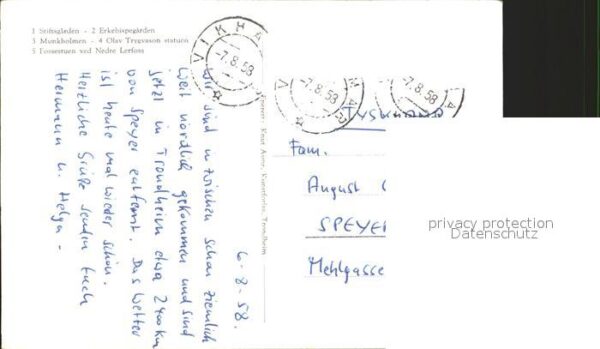 1 Stiftsgården - 2 Erkebispegården
3 Munkholmen - 4 Olav Trygvason statuen
5 Fossestuen ved Nedre Lerfoss
VIKHAMAR
-7.8.58
-7.8.58
-7.8.58
6-8-58.
Wir sind inzwischen schon ziemlich
weit nördlich gekommen und sind
jetzt in Trondheim etwa 2400 km
von Speyer entfernt. Das Wetter
ist heute mal wieder schön.
Herzliche Grüße senden Euch
Hermann u. Helga -
Enerett: Knut Aune, Kunstforlag, Trondheim
TYSKLAND
Fam.
August
SPEYER
Mehlgasse
privacy protection
Datenschutz